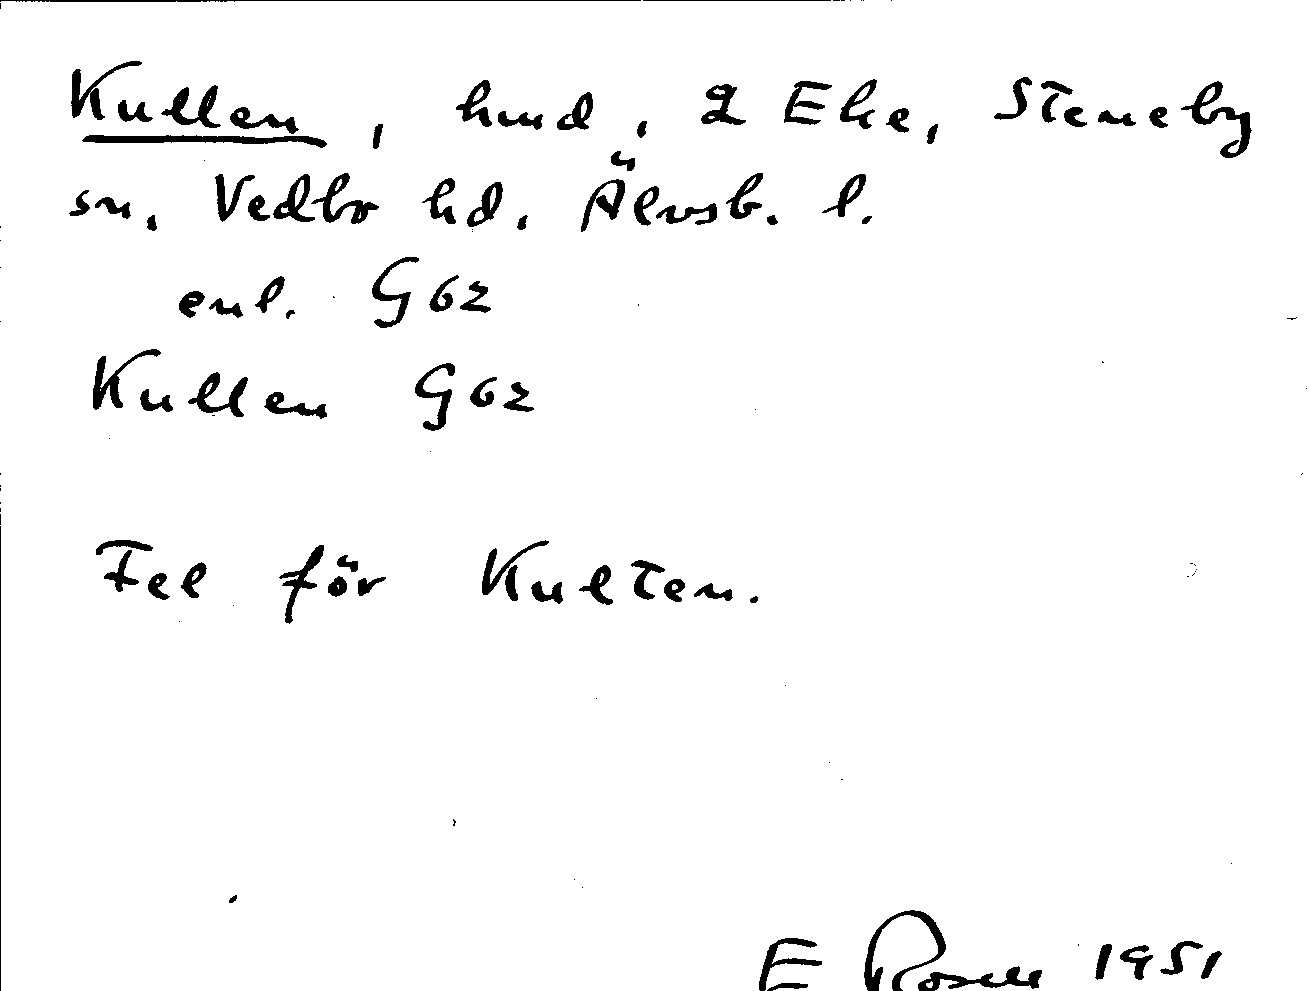 Kullen, hmd, 2 Eke, Steneby
sn, Vedbo hd, Älvsb. l.
enl. G62
Kullen G62
Fel för Kulten.
E Rosell 1951